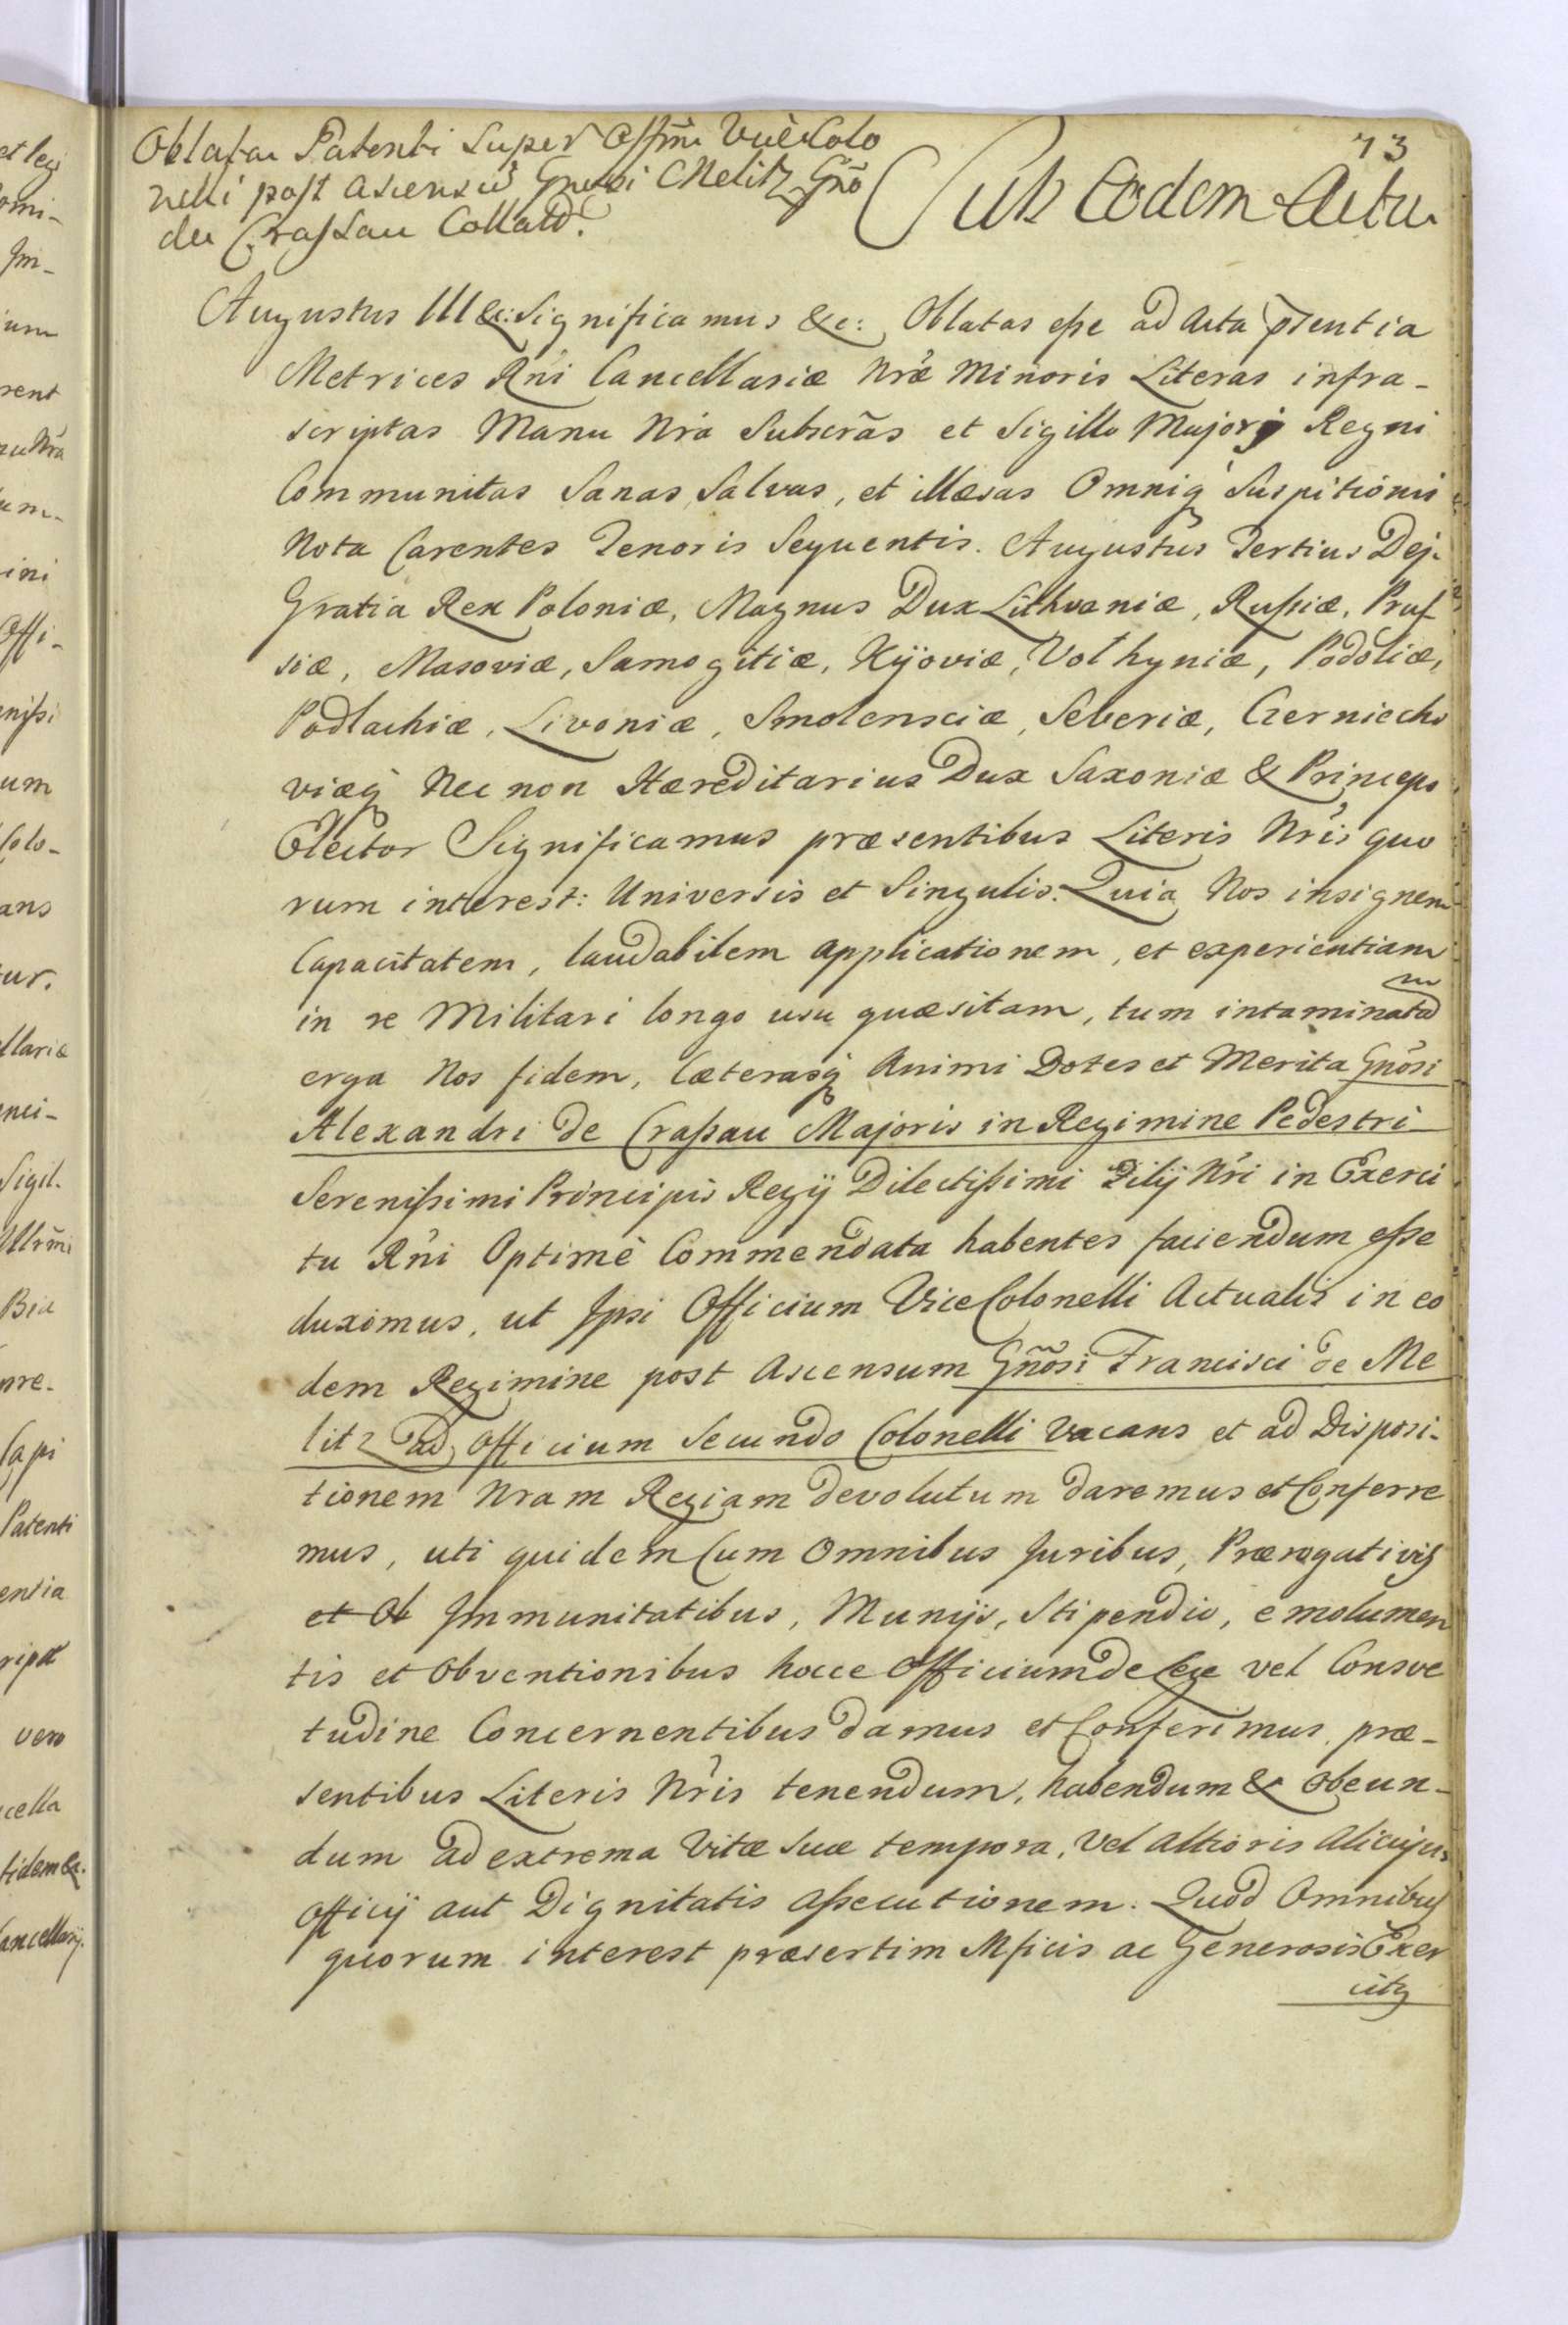 73
Oblata Patenti super Offm̃ ViceColo
nelli post ascensũ Gnosi Melitz Gño
de Crassau Collatũ.
Sub Eodem Actu
Augustus III &c: Significamus &c: Oblatas esse ad Acta p̃sentia
Metrices Rñi Cancellariæ Nr̃æ Minoris Literas infra-
scriptas Manu Nr̃a Subscrãs et Sigillo Majori Regni
Communitas Sanas Salvas, et illæsas Omniq̃ Suspitionis
Nota Carentes Tenoris Sequentis. Augustus Tertius Dei
Gratia Rex Poloniæ, Magnus Dux Lithvaniæ, Russiæ, Prus
siæ, Masoviæ, Samogitiæ, Kijoviæ, Volhyniæ, Podoliæ,
Podlachiæ, Livoniæ, Smolensciæ, Seberiæ, Czerniecho
viæq̃ Nec non Hæreditarius Dux Saxoniæ & Princeps
Elector Significamus præsentibus Literis Nr̃is quo
rum interest: Universis et Singulis. Quia Nos insignem
Capacitatem, laudabilem applicationem, et experientiam
in re Militari longo usu quæsitam, tum intaminatam
erga Nos fidem, Cæterasq̃ Animi Dotes et Merita Gnõsi
Alexandri de Crassau Majoris in Regimine Pedestri
Serenissimi Principis Regij Dilectissimi Filij Nr̃i in Exerci
tu Rñi Optimè Commendata habentes faciendum esse
duximus, ut Ipsi Officium ViceColonelli Actualis in eo
dem Regimine post Ascensum Gnõsi Francisci de Me
litz ad Officium Secundo Colonelli Vacans et ad Disposi-
tionem Nram Regiam devolutum daremus et Conferre
mus, uti quidem Cum Omnibus Juribus, Prærogativis
et Ob Immunitatibus, Munijs, Stipendio, emolumen
tis et Obventionibus hocce Officium de lege vel Consve
tudine Concernentibus damus et Conferimus, præ-
sentibus Literis Nr̃is tenendum, habendum & obeun-
dum ad extrema Vitæ Suæ tempora, Vel altioris alicujus
Officij aut Dignitatis assecutionem. Quod Omnibus
quorum interest præsertim Mficis ac Generosis Exer
citus